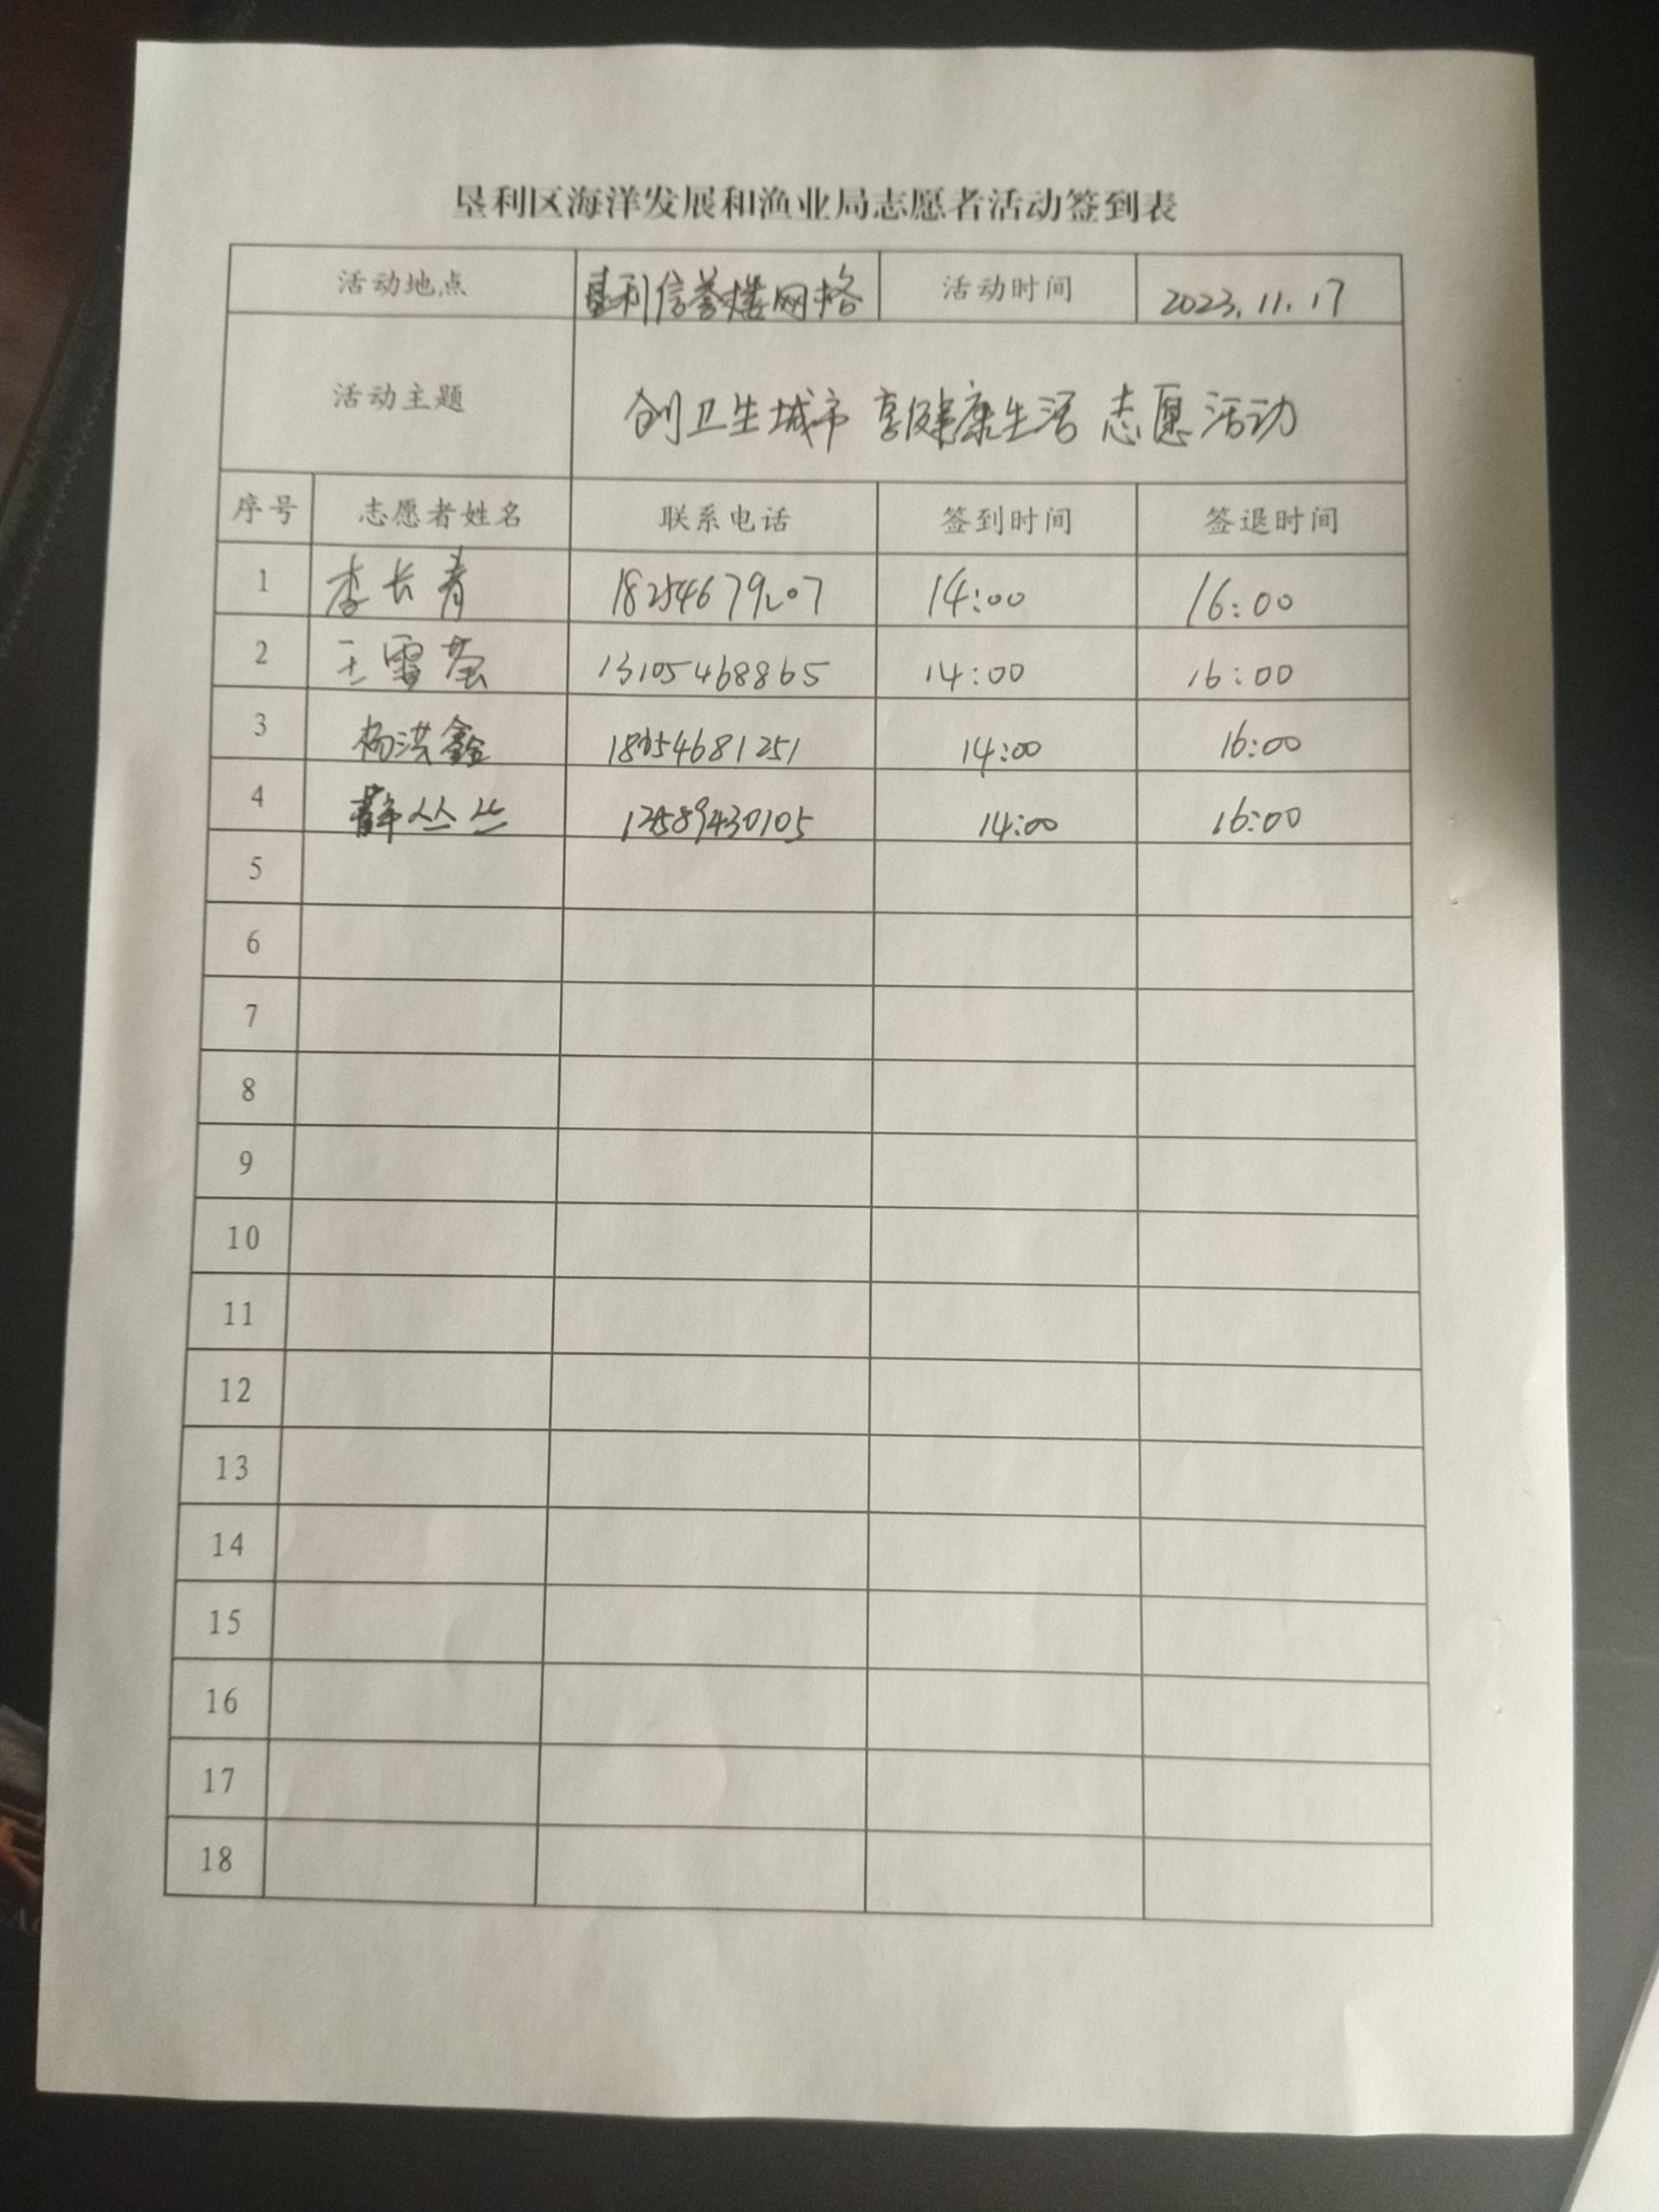 垦利区海洋发展和渔业局志愿者活动签到表
活动地点 垦利信誉楼网格 活动时间 2023.11.17
活动主题 创卫生城市 享健康生活 志愿活动
序号 志愿者姓名 联系电话 签到时间 签退时间
1 李长青 18254679207 14:00 16:00
2 王雪莹 13105468865 14:00 16:00
3 杨洪鑫 14:00 16:00
4 薛丛丛 14:00 16:00
5
6
7
8
9
10
11
12
13
14
15
16
17
18